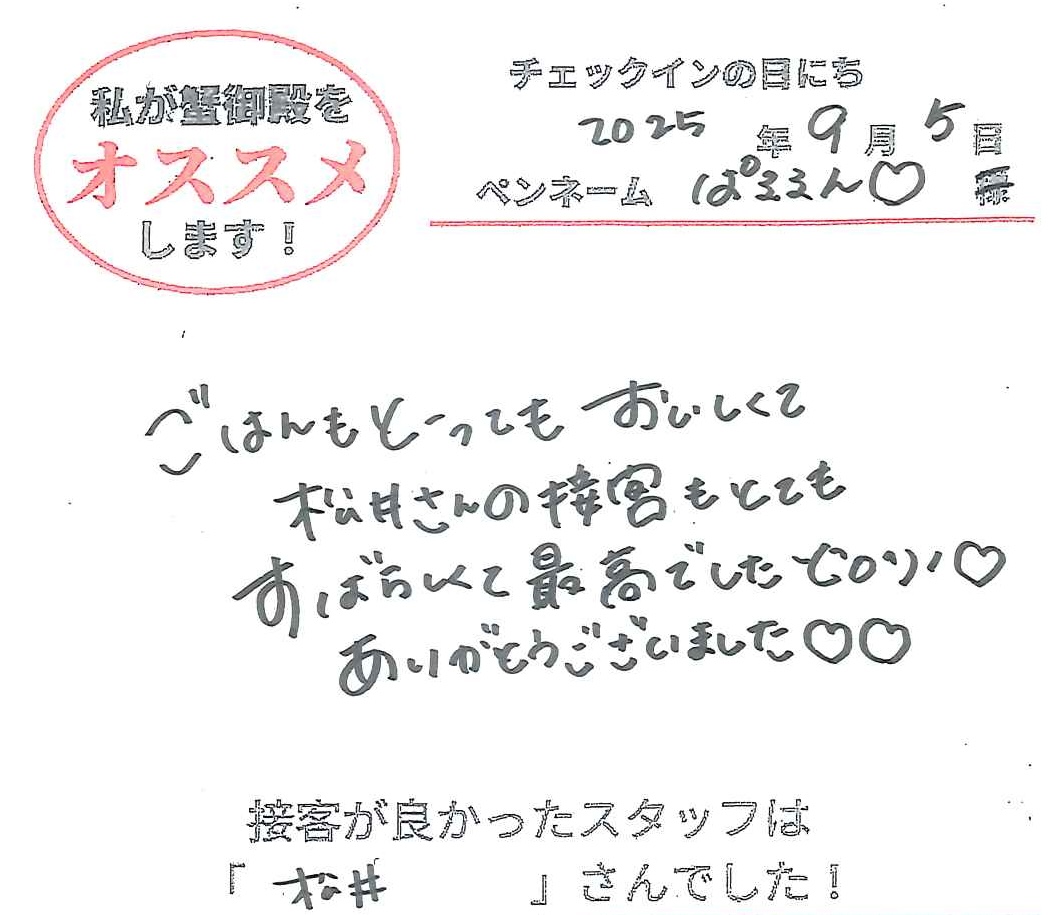 私が蟹御殿を
オススメ
します！
チェックインの日にち
2025年9月5日
ペンネーム ぱるるん♡ 様
ごはんもとーってもおいしくて
松井さんの接客もとても
すばらしくて最高でした♡
ありがとうございました♡♡
接客が良かったスタッフは
「松井」さんでした！